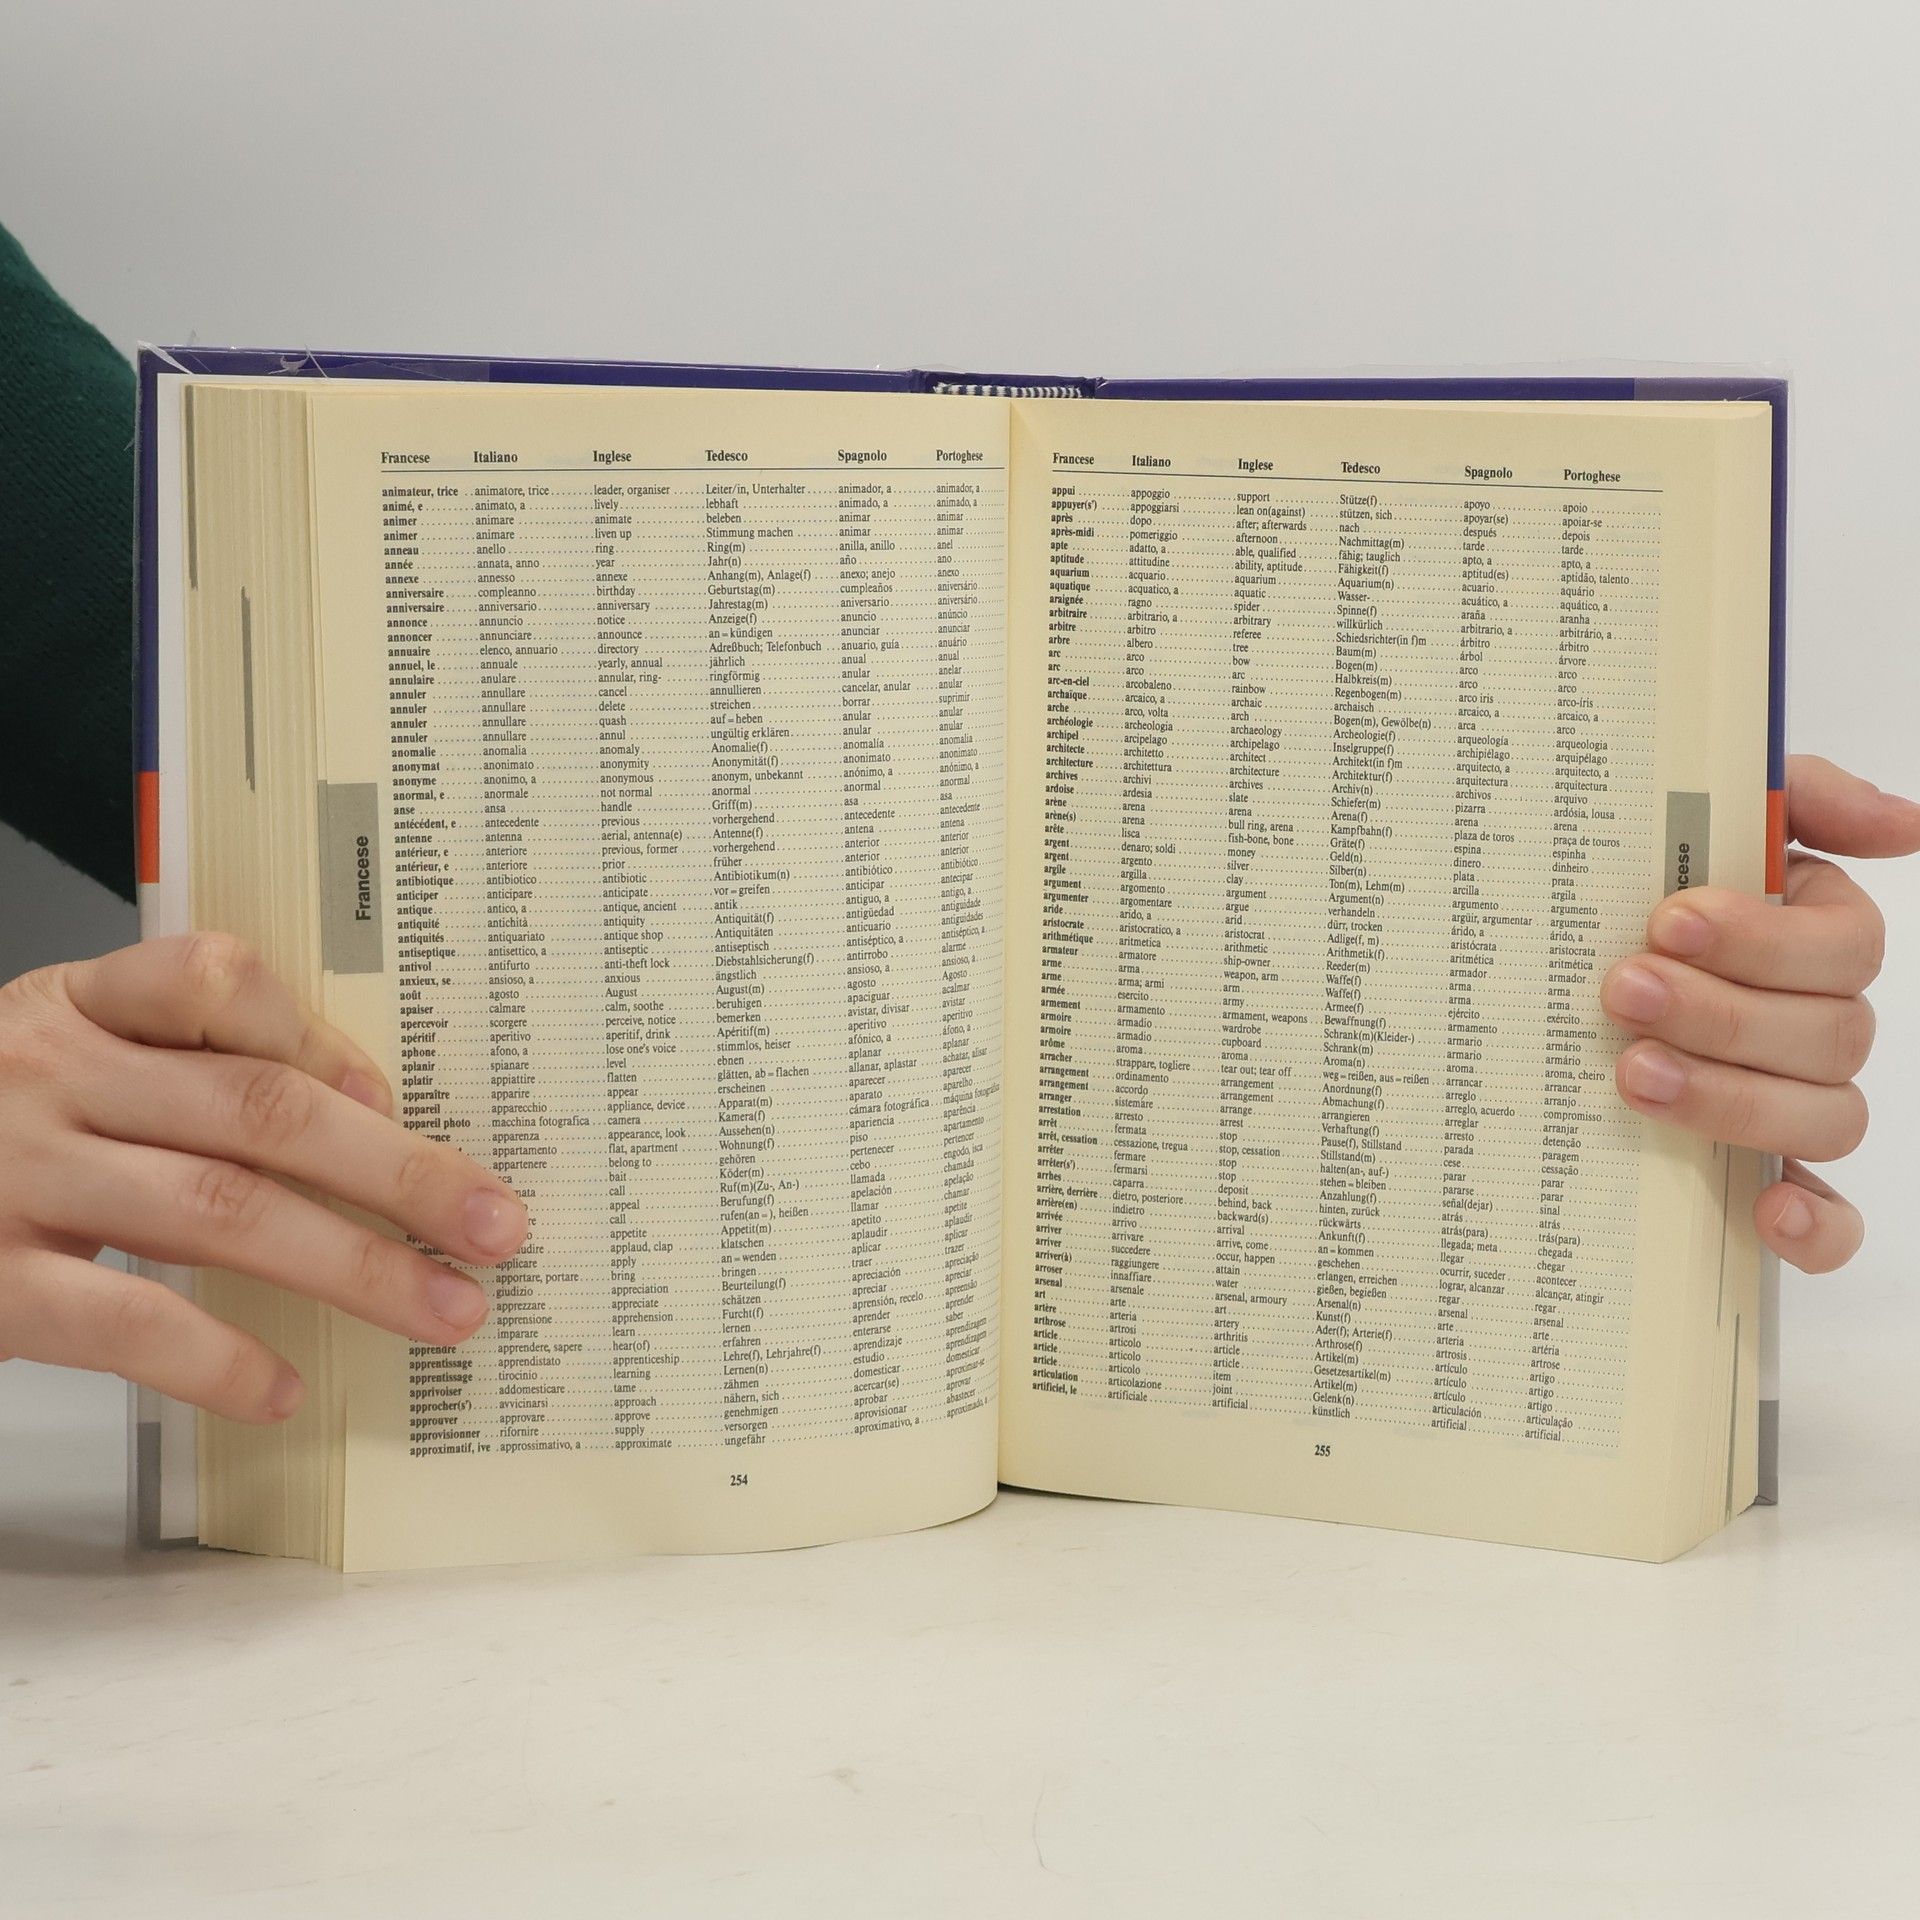 Francese Italiano Inglese Tedesco Spagnolo Portoghese
animateur, trice animatore, trice leader, organiser Leiter/in, Unterhalter animador, a animador, a
animé, e animato, a lively lebhaft animado, a animado, a
animer animare animate beleben animar animar
animer animare liven up Stimmung machen animar animar
anneau anello ring Ring(m) anilla, anillo anel
année annata, anno year Jahr(n) año ano
annexe annesso annexe Anhang(m), Anlage(f) anexo; anejo anexo
anniversaire compleanno birthday Geburtstag(m) cumpleaños aniversário
anniversaire anniversario anniversary Jahrestag(m) aniversario aniversário
annonce annuncio notice Anzeige(f) anuncio anúncio
annoncer annunciare announce an=kündigen anunciar anunciar
annuaire elenco, annuario directory Adreßbuch; Telefonbuch anuario, guía anuário
annuel, le annuale yearly, annual jährlich anual anual
annulaire anulare annular, ring- ringförmig anular anelar
annuler annullare cancel annullieren cancelar, anular anular
annuler annullare delete streichen borrar suprimir
annuler annullare quash auf=heben anular anular
annuler annullare annul ungültig erklären anular anular
anomalie anomalia anomaly Anomalie(f) anomalía anomalia
anonymat anonimato anonymity Anonymität(f) anonimato anonimato
anonyme anonimo, a anonymous anonym, unbekannt anónimo, a anónimo, a
anormal, e anormale not normal anormal anormal anormal
anse ansa handle Griff(m) asa asa
antécédent, e antecedente previous vorhergehend antecedente antecedente
antenne antenna aerial, antenna(e) Antenne(f) antena antena
antérieur, e anteriore previous, former vorhergehend anterior anterior
antérieur, e anteriore prior früher anterior anterior
antibiotique antibiotico antibiotic Antibiotikum(n) antibiótico antibiótico
anticiper anticipare anticipate vor=greifen anticipar antecipar
antique antico, a antique, ancient antik antiguo, a antigo, a
antiquité antichità antiquity Antiquität(f) antigüedad antiguidade
antiquités antiquariato antique shop Antiquitäten anticuario antiguidades
antiseptique antisettico, a antiseptic antiseptisch antiséptico, a antiséptico, a
antivol antifurto anti-theft lock Diebstahlsicherung(f) antirrobo alarme
anxieux, se ansioso, a anxious ängstlich ansioso, a ansioso, a
août agosto August August(m) agosto Agosto
apaiser calmare calm, soothe beruhigen apaciguar acalmar
apercevoir scorgere perceive, notice bemerken avistar, divisar avistar
apéritif aperitivo aperitif, drink Apéritif(m) aperitivo aperitivo
aphone afono, a lose one's voice stimmlos, heiser afónico, a áfono, a
aplanir spianare level ebnen aplanar aplanar
aplatir appiattire flatten glätten, ab=flachen allanar, aplastar achatar, alisar
apparaître apparire appear erscheinen aparecer aparecer
appareil apparecchio appliance, device Apparat(m) aparato aparelho
appareil photo macchina fotografica camera Kamera(f) cámara fotográfica máquina fotográfica
rence apparenza appearance, look Aussehen(n) apariencia aparência
appartamento flat, apartment Wohnung(f) piso apartamento
appartenere belong to gehören pertenecer pertencer
ca bait Köder(m) cebo engodo, isca
mata call Ruf(m)(Zu-, An-) llamada chamada
appeal Berufung(f) apelación apelação
re call rufen(an=), heißen llamar chamar
o appetite Appetit(m) apetito apetite
udire applaud, clap klatschen aplaudir aplaudir
applicare apply an=wenden aplicar aplicar
apportare, portare bring bringen traer trazer
giudizio appreciation Beurteilung(f) apreciación apreciação
apprezzare appreciate schätzen apreciar apreciar
apprensione apprehension Furcht(f) aprensión, recelo apreensão
imparare learn lernen aprender aprender
apprendre apprendere, sapere hear(of) erfahren enterarse saber
apprentissage apprendistato apprenticeship Lehre(f), Lehrjahre(f) aprendizaje aprendizagem
apprentissage tirocinio learning Lernen(n) estudio aprendizagem
apprivoiser addomesticare tame zähmen domesticar domesticar
approcher(s') avvicinarsi approach nähern, sich acercar(se) aproximar-se
approuver approvare approve genehmigen aprobar aprovar
approvisionner rifornire supply versorgen aprovisionar abastecer
approximatif, ive approssimativo, a approximate ungefähr aproximativo, a aproximado, a
254
Francese
Francese Italiano Inglese Tedesco Spagnolo Portoghese
appui appoggio support Stütze(f) apoyo apoio
appuyer(s') appoggiarsi lean on(against) stützen, sich apoyar(se) apoiar-se
après dopo after; afterwards nach después depois
après-midi pomeriggio afternoon Nachmittag(m) tarde tarde
apte adatto, a able, qualified fähig; tauglich apto, a apto, a
aptitude attitudine ability, aptitude Fähigkeit(f) aptitud(es) aptidão, talento
aquarium acquario aquarium Aquarium(n) acuario aquário
aquatique acquatico, a aquatic Wasser- acuático, a aquático, a
araignée ragno spider Spinne(f) araña aranha
arbitraire arbitrario, a arbitrary willkürlich arbitrario, a arbitrário, a
arbitre arbitro referee Schiedsrichter(in f)m árbitro árbitro
arbre albero tree Baum(m) árbol árvore
arc arco bow Bogen(m) arco arco
arc arco arc Halbkreis(m) arco arco
arc-en-ciel arcobaleno rainbow Regenbogen(m) arco iris arco-íris
archaïque arcaico, a archaic archaisch arcaico, a arcaico, a
arche arco, volta arch Bogen(m), Gewölbe(n) arca arco
archéologie archeologia archaeology Archeologie(f) arqueología arqueologia
archipel arcipelago archipelago Inselgruppe(f) archipiélago arquipélago
architecte architetto architect Architekt(in f)m arquitecto, a arquitecto, a
architecture architettura architecture Architektur(f) arquitectura arquitectura
archives archivi archives Archiv(n) archivos arquivo
ardoise ardesia slate Schiefer(m) pizarra ardósia, lousa
arène arena arena Arena(f) arena arena
arène(s) arena bull ring, arena Kampfbahn(f) plaza de toros praça de touros
arête lisca fish-bone, bone Gräte(f) espina espinha
argent denaro; soldi money Geld(n) dinero dinheiro
argent argento silver Silber(n) plata prata
argile argilla clay Ton(m), Lehm(m) arcilla argila
argument argomento argument Argument(n) argumento argumento
argumenter argomentare argue verhandeln argüir, argumentar argumentar
aride arido, a arid dürr, trocken árido, a árido, a
aristocrate aristocratico, a aristocrat Adlige(f, m) aristócrata aristocrata
arithmétique aritmetica arithmetic Arithmetik(f) aritmética aritmética
armateur armatore ship-owner Reeder(m) armador armador
arme arma weapon, arm Waffe(f) arma arma
arme arma; armi arm Waffe(f) arma arma
armée esercito army Armee(f) ejército exército
armement armamento armament, weapons Bewaffnung(f) armamento armamento
armoire armadio wardrobe Schrank(m)(Kleider-) armario armário
armoire armadio cupboard Schrank(m) armario armário
arôme aroma aroma Aroma(n) aroma aroma, cheiro
arracher strappare, togliere tear out; tear off weg=reißen, aus=reißen arrancar arrancar
arrangement ordinamento arrangement Anordnung(f) arreglo arranjo
arrangement accordo arrangement Abmachung(f) arreglo, acuerdo compromisso
arranger sistemare arrange arrangieren arreglar arranjar
arrestation arresto arrest Verhaftung(f) arresto detenção
arrêt fermata stop Pause(f), Stillstand parada paragem
arrêt, cessation cessazione, tregua stop, cessation Stillstand(m) cese cessação
arrêter fermare stop halten(an-, auf-) parar parar
arrêter(s') fermarsi stop stehen=bleiben pararse parar
arrhes caparra deposit Anzahlung(f) señal(dejar) sinal
arrière, derrière dietro, posteriore behind, back hinten, zurück atrás atrás
arrière(en) indietro backward(s) rückwärts atrás(para) trás(para)
arrivée arrivo arrival Ankunft(f) llegada; meta chegada
arriver arrivare arrive, come an=kommen llegar chegar
arriver succedere occur, happen geschehen ocurrir, suceder acontecer
arriver(à) raggiungere attain erlangen, erreichen lograr, alcanzar alcançar, atingir
arroser innaffiare water gießen, begießen regar regar
arsenal arsenale arsenal, armoury Arsenal(n) arsenal arsenal
art arte art Kunst(f) arte arte
artère arteria artery Ader(f); Arterie(f) arteria artéria
arthrose artrosi arthritis Arthrose(f) artrosis artrose
article articolo article Artikel(m) artículo artigo
article articolo article Gesetzesartikel(m) artículo artigo
article articolo item Artikel(m) artículo artigo
articulation articolazione joint Gelenk(n) articulación articulação
artificiel, le artificiale artificial künstlich artificial artificial
255
cese